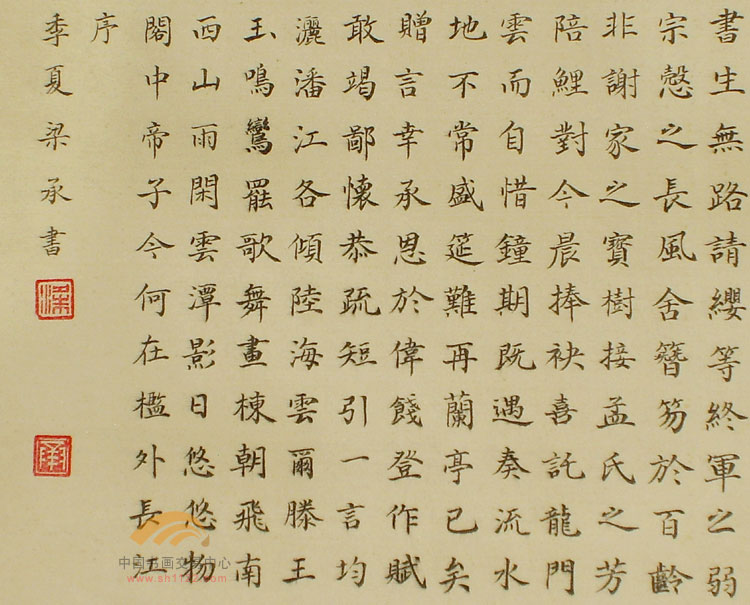 書生無路請纓等終軍之弱
宗慤之長風舍簪笏於百齡
非謝家之寶樹接孟氏之芳
陪鯉對今晨捧袂喜託龍門
雲而自惜鐘期既遇奏流水
地不常盛筵難再蘭亭已矣
贈言幸承恩於偉餞登作賦
敢竭鄙懷恭疏短引一言均
灑潘江各傾陸海雲爾滕王
玉鳴鸞罷歌舞畫棟朝飛南
西山雨閑雲潭影日悠悠物
閣中帝子今何在檻外長江
序
季夏梁承書
梁
承
中国书画交易中心